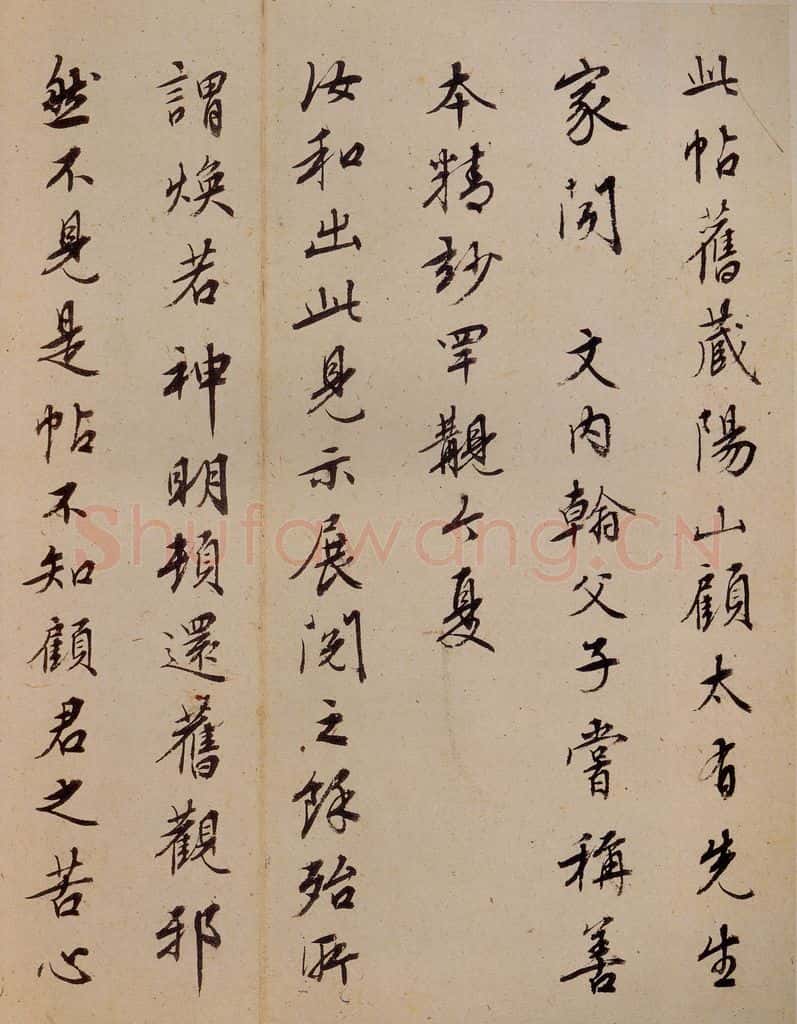 此帖舊藏陽山顧太有先生
家聞 文内翰父子嘗稱善
本精妙罕覯今夏
汝和出此見示展閱之餘殆所
謂煥若神明頓還舊觀邪
然不見是帖不知顧君之苦心
Shufawang.CN